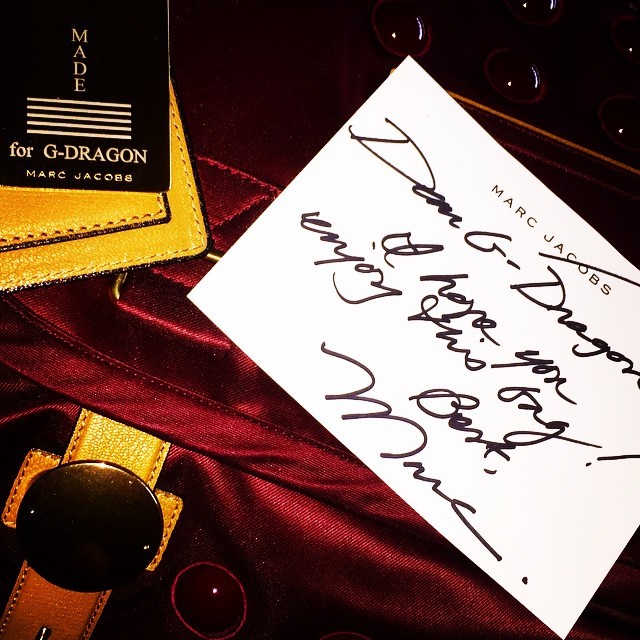 MADE
for G-DRAGON
MARC JACOBS
MARC JACOBS
Dear G-Dragon
I hope you
enjoy this bag!
Best,
Marc.